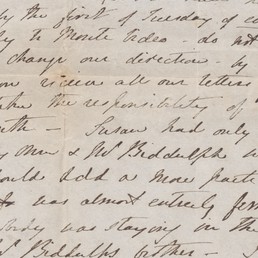 by the first of Tuesday of e
to Monte Video - do not
change our direction - by
receive all our letters
the responsibility of
- Susan had only
own & Mr Biddulph w
could add a more parti
was almost entirely
was staying in the
Biddulphs brother - I